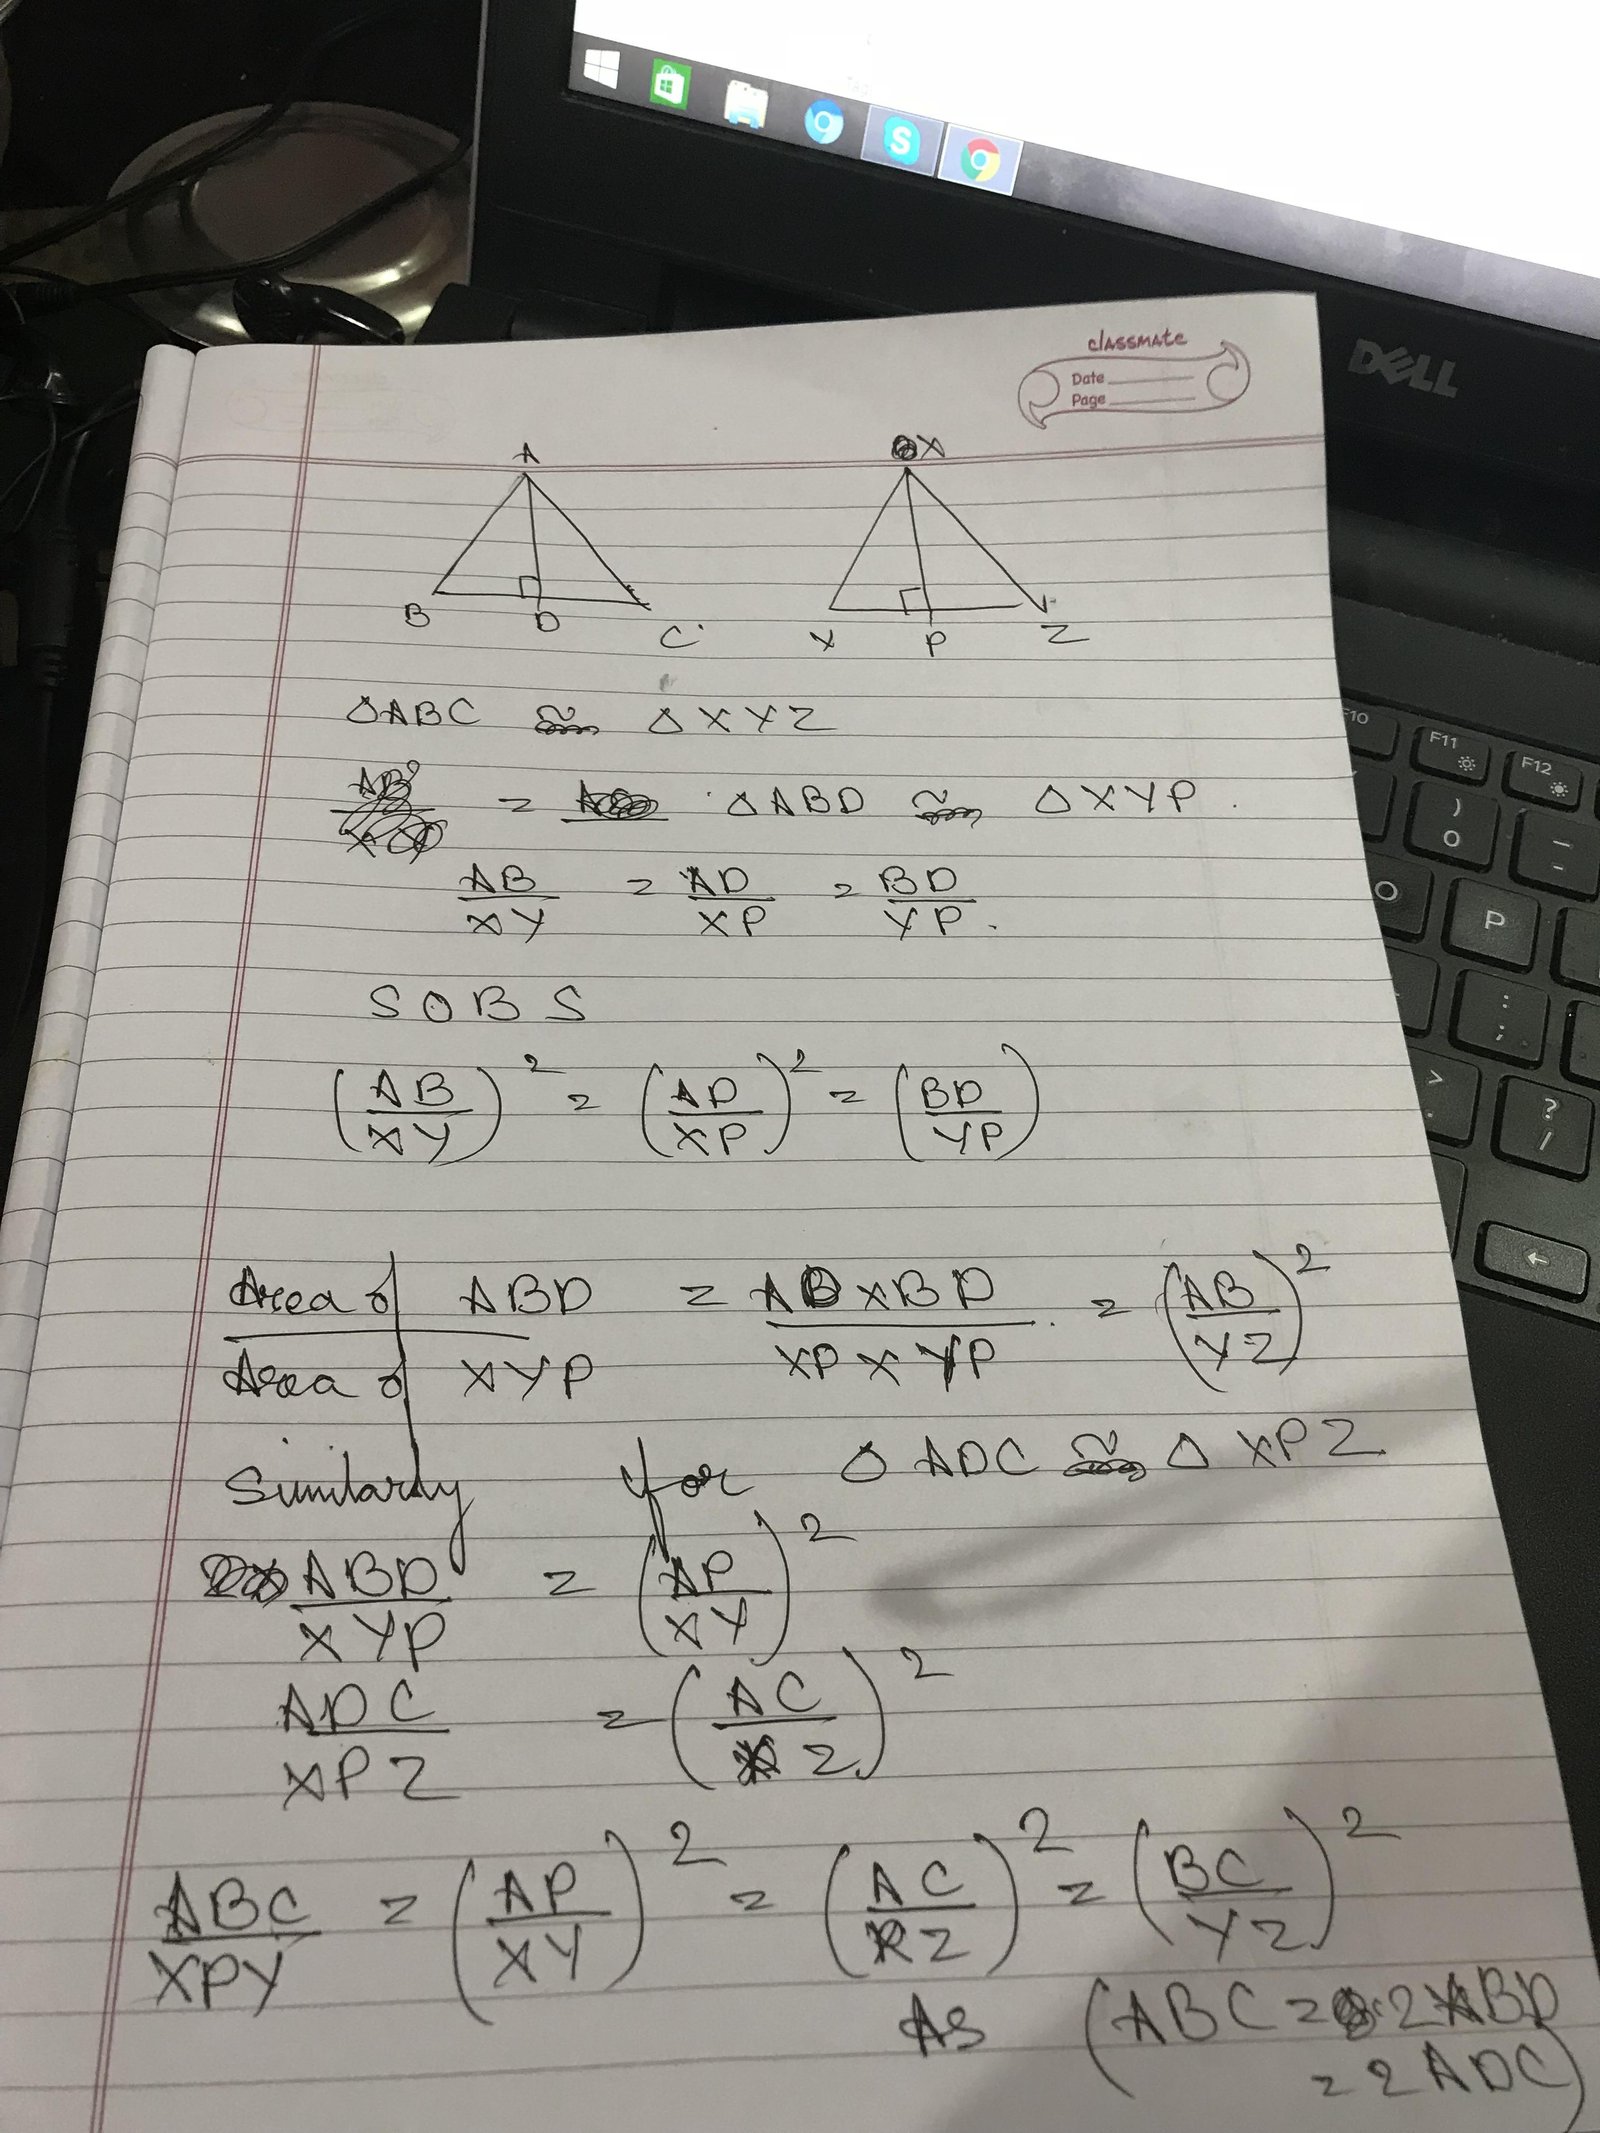 S
DELL
classmate
Date
Page
A X
B D C Y P Z
△ABC ~ △XYZ
= △ABD ~ △XYP
AB/XY = AD/XP = BD/YP.
SOBS
(AB/XY)² = (AD/XP)² = (BD/YP)
Area of ABD / Area of XYP = AD×BD / XP×YP = (AB/YZ)²
Similarly for △ADC ~ △XPZ
ABD/XYP = (AP/XY)²
ADC/XPZ = (AC/XZ)²
ABC/XPY = (AP/XY)² = (AC/XZ)² = (BC/YZ)²
As (ABC = 2ABD
= 2ADC)
F10
F11
F12
)
0
_
-
O
P
:
;
>
.
?
/
←